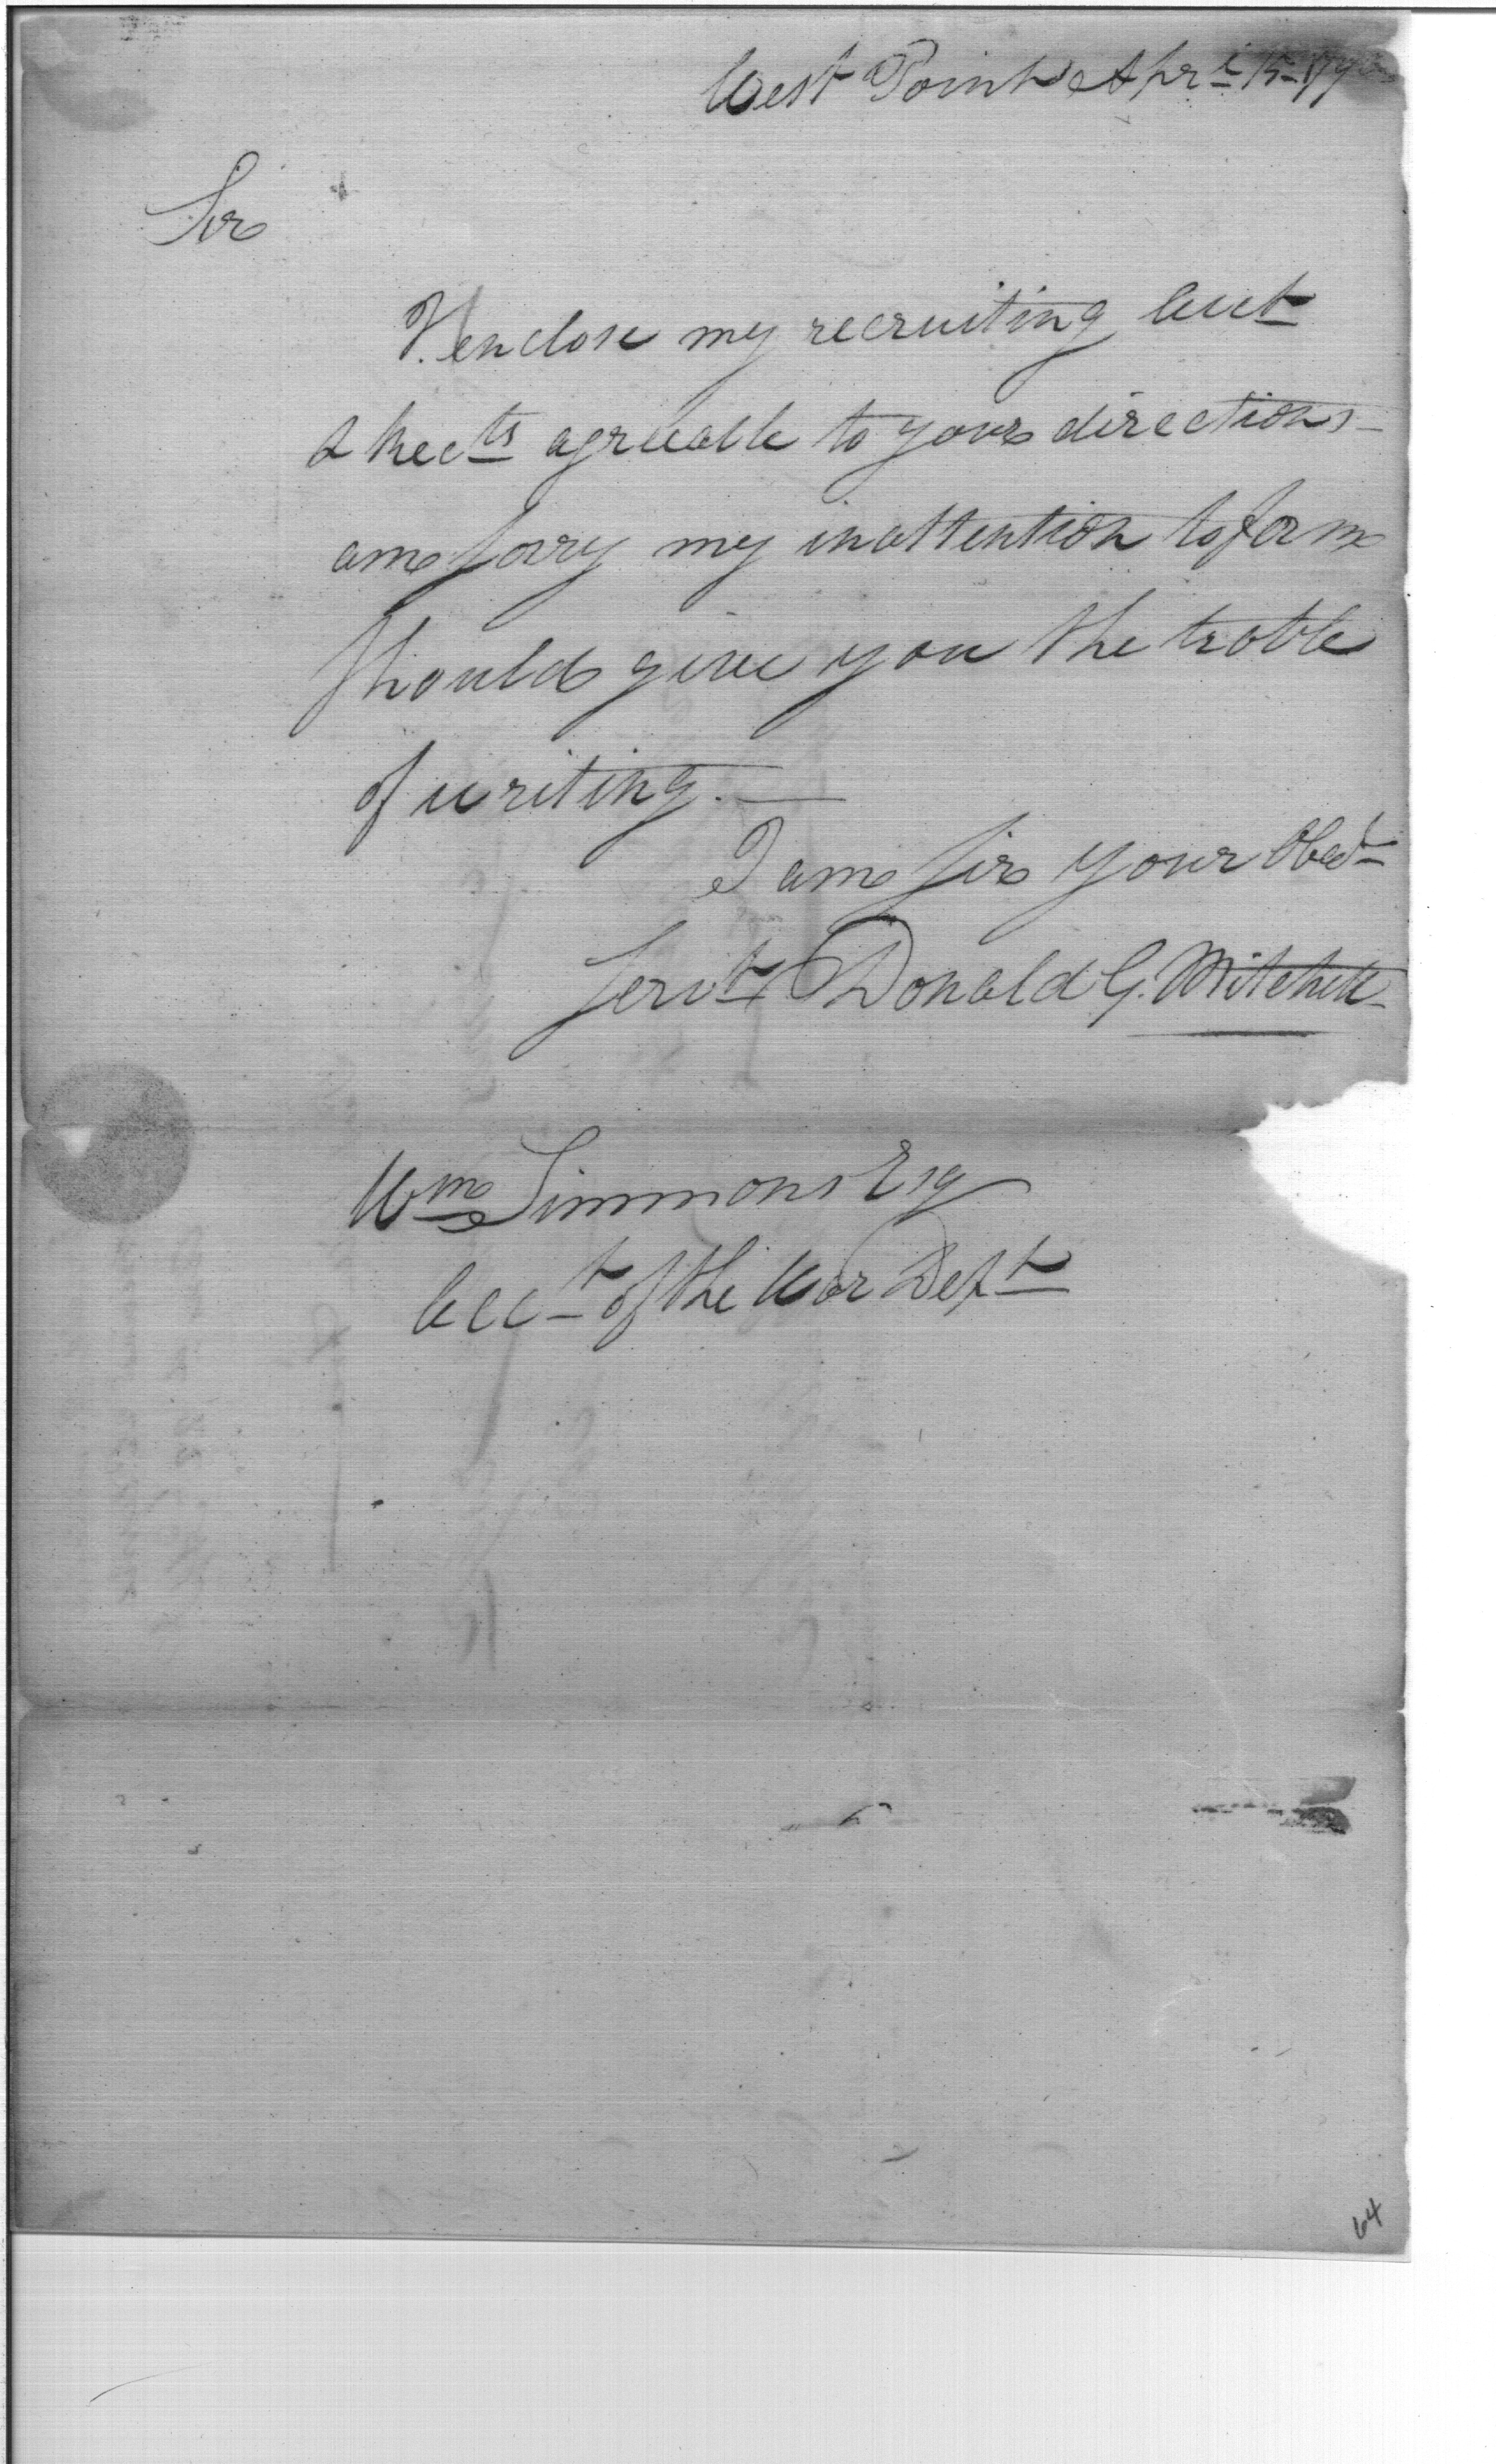 West Point Apr<sup>l</sup> 15 179
Sir
I enclose my recruiting Acct
& Rec<sup>ts</sup> agreeable to your directions-
am sorry my inattention to form
should give you the troble
of writing.—
I am Sir your Obed<sup>t</sup>
Serv<sup>t</sup> Donald G. Mitchell
W<sup>m</sup> Simmons Esq
Acc<sup>t</sup> of the War Dep<sup>t</sup>
64